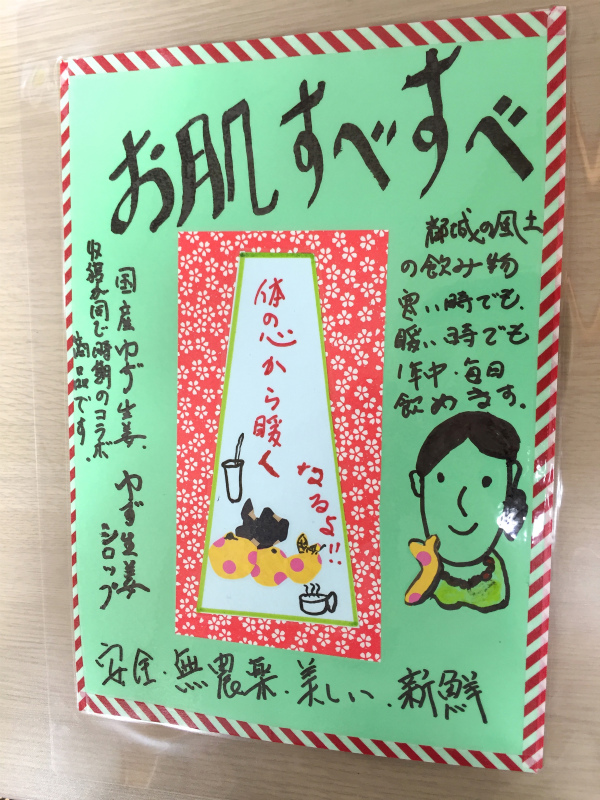 お肌すべすべ
都城の風土
の飲み物
寒い時でも、
暖い時でも
1年中・毎日
飲めます。
体の心から暖く
なるよ!!
国産ゆず生姜、
ゆず生姜
シロップ
収穫が同じ時期のコラボ
商品です。
安全・無農薬・美しい・新鮮